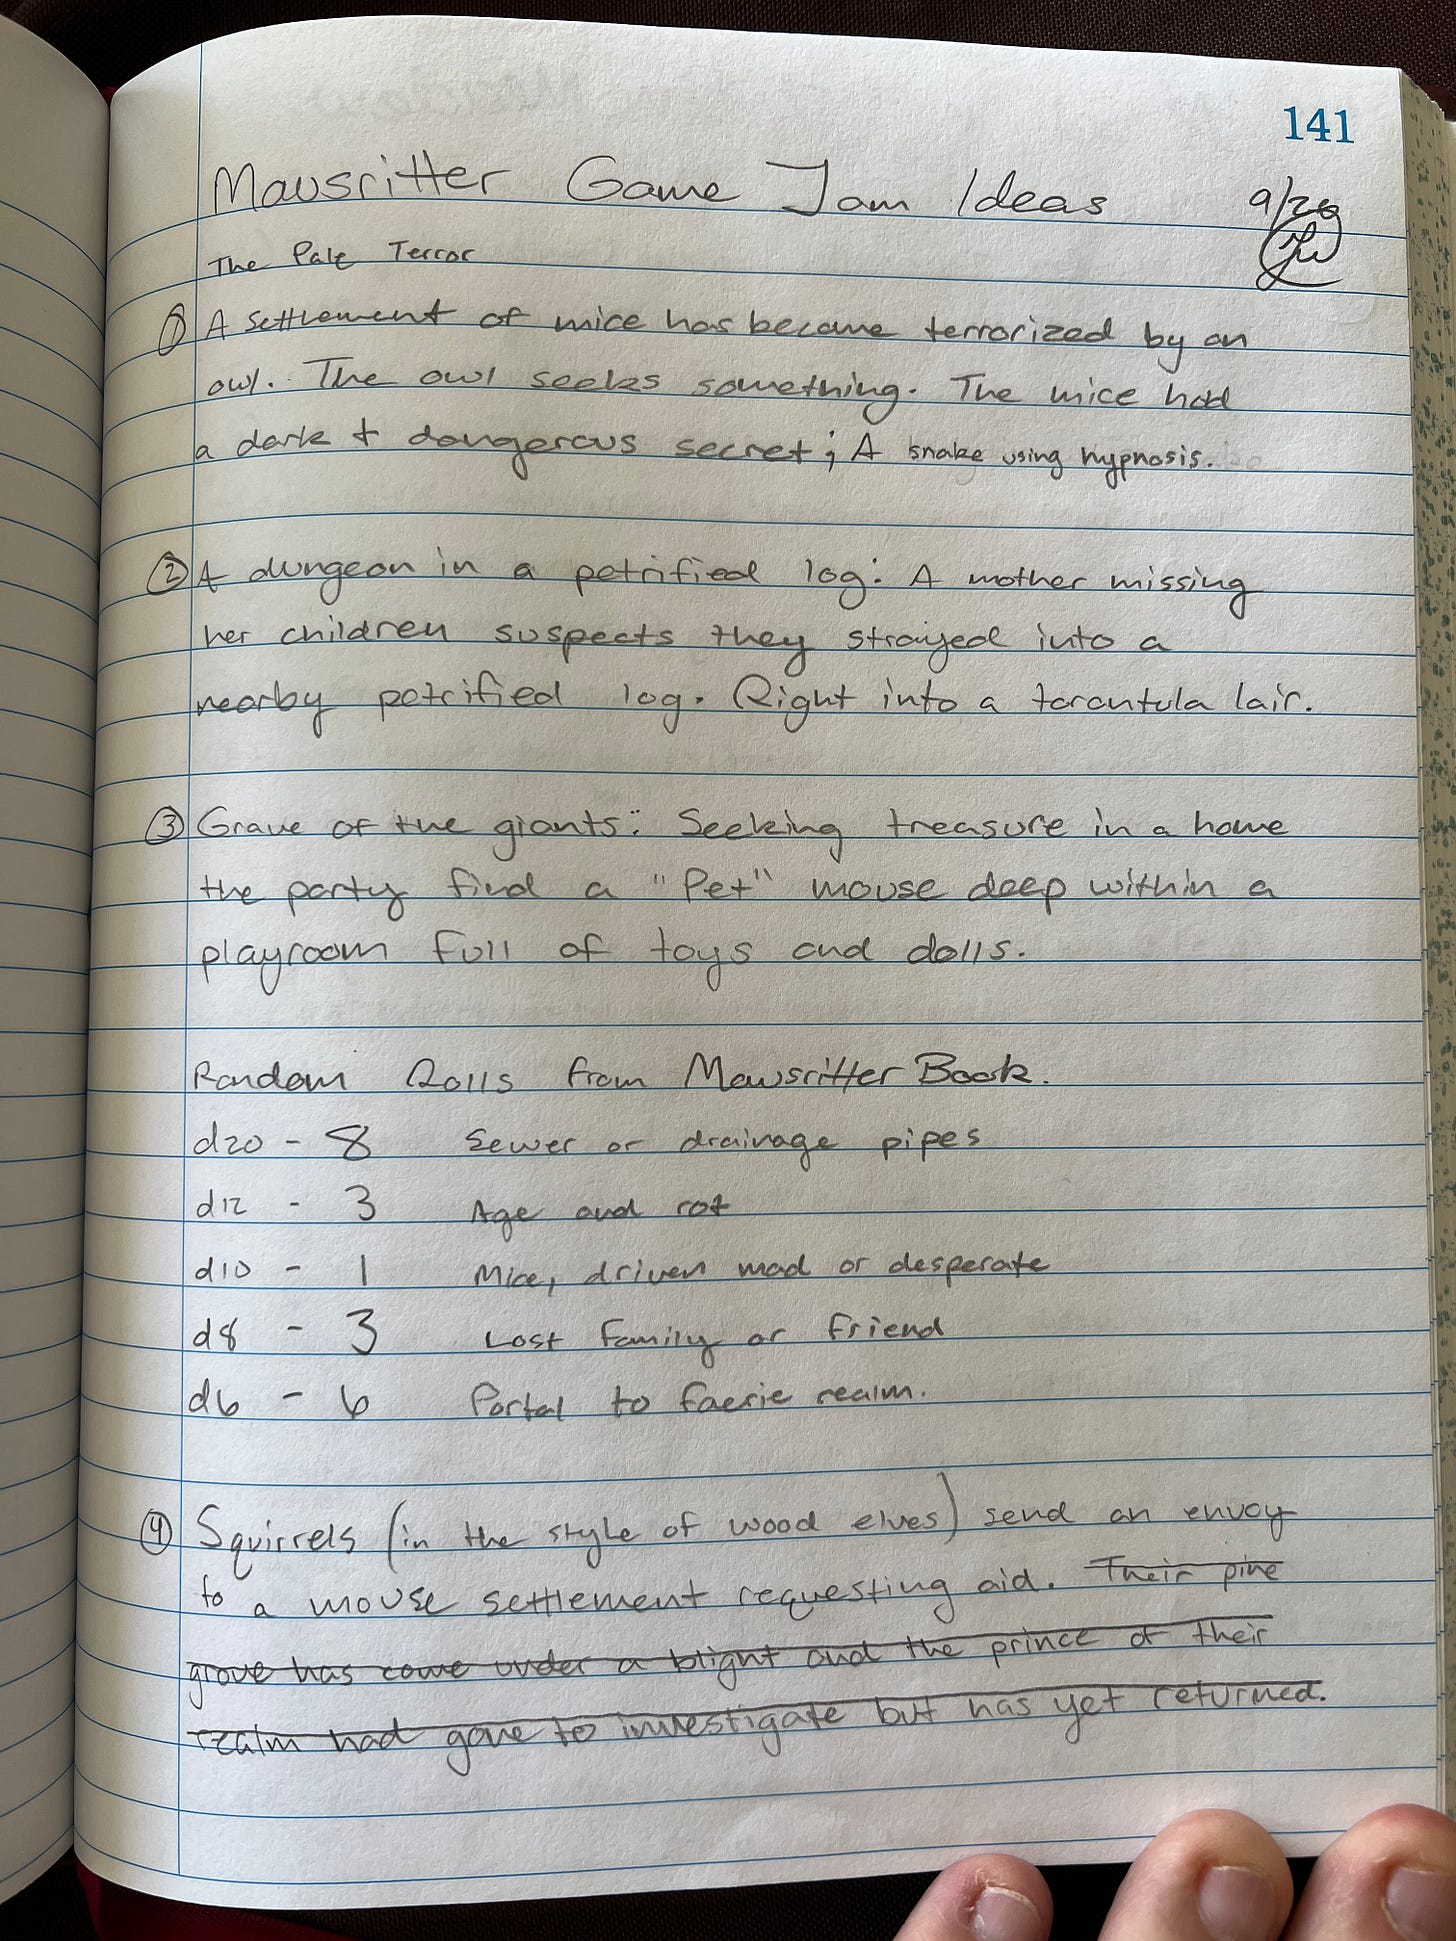 141
Mausritter Game Jam Ideas
9/20
The Pale Terror
① A settlement of mice has become terrorized by an
owl. The owl seeks something. The mice hold
a dark + dangerous secret; A snake using hypnosis.
② A dungeon in a petrified log: A mother missing
her children suspects they strayed into a
nearby petrified log. Right into a tarantula lair.
③ Grave of the giants: Seeking treasure in a home
the party find a "Pet" mouse deep within a
playroom full of toys and dolls.
Random Rolls from Mausritter Book.
d20 - 8 Sewer or drainage pipes
d12 - 3 Age and rot
d10 - 1 Mice, driven mad or desperate
d8 - 3 Lost family or friend
d6 - 6 Portal to faerie realm.
④ Squirrels (in the style of wood elves) send an envoy
to a mouse settlement requesting aid. Their pine
grove has come under a blight and the prince of their
realm had gone to investigate but has yet returned.